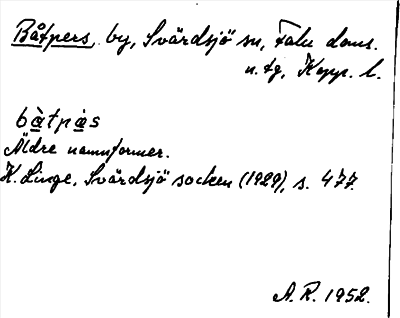 Båtpers, by, Svärdsjö sn, Falu doms.
n. tg, Kopp. l.
bàtpàs
Äldre namnformer.
K. Linge, Svärdsjö socken (1929), s. 477.
A. R. 1952.